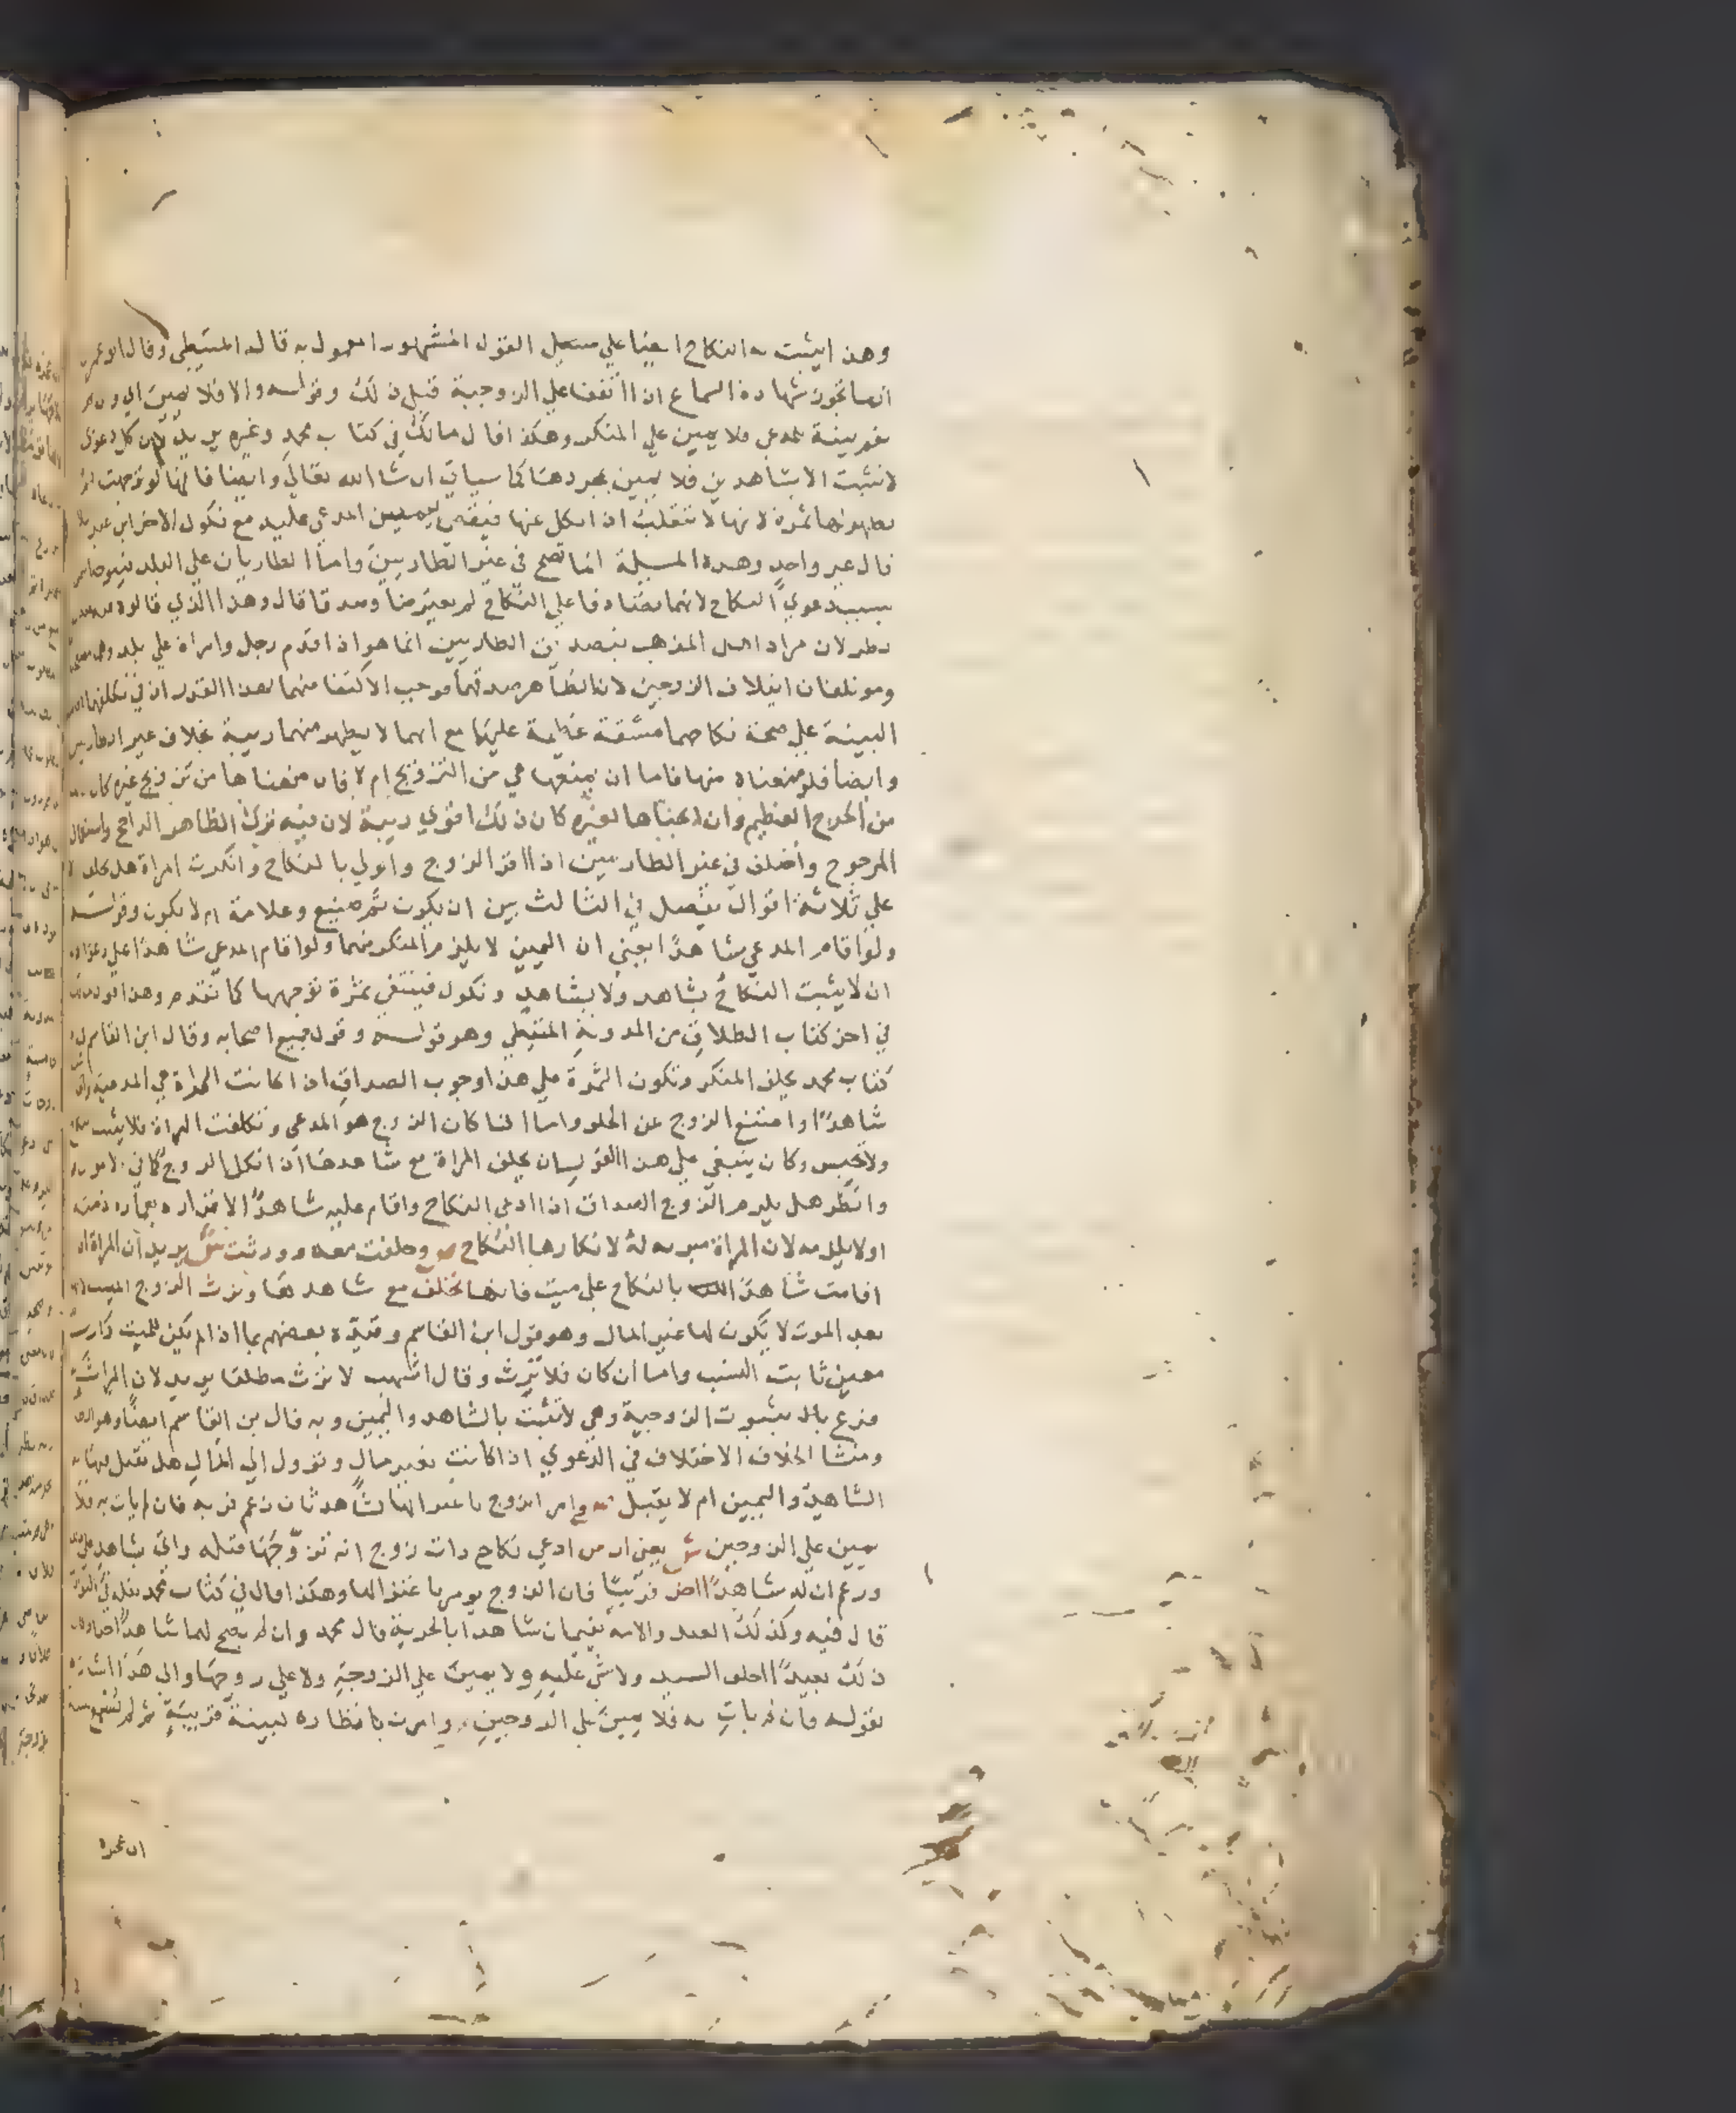 وهذا يثبت به النكاح ايضا علي سبيل القول المشهور المعمول به قاله المتيطي وقال ابو عمر
انما تجوز شهادة السماع اذا اتفقا علي الزوجية قبل ذلك وقوله والا فلا يمين اي وان لم
بينة لمدعي فلا يمين علي المنكر وهكذا قال مالك في كتاب محمد وغيره يريد لان كل دعوي
لا تثبت الا بشاهدين فلا يمين بمجردها كما سياتي ان شا الله تعالي وايضا فانها لو توجهت لم
يظهر لها ثمرة لانها لا تنقلب اذا نكل عنها فيقضي يمين المدعي عليه مع نكول الاخر ابن عبد
قال غير واحد وهده المسيلة انما تصح في غير الطاريين واما الطاريان علي البلد
بسبب دعوي النكاح لانهما تصادفا علي النكاح لم يعترضا وصدقا قال وهذا الذي قالوه
نظر لان مراد اهل المذهب بتصديق الطاريين انما هو اذا قدم رجل وامراة علي بلد
وموتلفان ايتلاف الزوجين لان الظاهر صدقهما فوجب الاكتفا منهما بهذا القدر اذ في تكلفهما
البينة علي صحة نكاحهما مشقة عظيمة عليهما مع انهما لا يظهر منهما ريبة بخلاف غير الطاريين
وايضا فلو منعناه منها فاما ان يمنعها هي من التزويج ام لا فان منعناها من تزويج غيره كان
من الحرج العظيم وان ابحناها لغيره كان ذلك اقوي ريبة لان فيه ترك الظاهر الراجح واستعمال
المرجوح واختلف في غير الطاريين اذا اقر الزوج والولي بالنكاح وانكرت المراة هل تحلف
علي ثلاثة اقوال يفصل في الثالث بين ان يكون ثم صنيع وعلامة ام لا يكون وقوله
ولو اقام المدعي شاهدا يعني ان اليمين لا يلزم المنكر منهما ولو اقام المدعي شاهدا علي دعواه
اذ لا يثبت النكاح بشاهد ولا بشاهد ونكول فينتفي ثمرة توجهها كما تقدم وهذا
في اخر كتاب الطلاق من المدونة المتيطي وهو قوله وقول جميع اصحابه وقال ابن القاسم
كتاب محمد يحلف المنكر وتكون الثمرة علي هذا وجوب الصداق اذا كانت المراة هي المدعية
شاهدا وامتنع الزوج عن الحلف واما اذا كان الزوج هو المدعي وتكلفت المراة فلا يثبت
ولا تحبس وكان ينبغي علي هذا القول ان يحلف المراة مع شاهدها اذا نكل الزوج كما في
وانظر هل يلزم الزوج الصداق اذا ادعي النكاح واقام عليه شاهدا لاقراره بعمارة ذمته
او لا يلزمه لان المراة مبرية له لانكارها النكاح ص وحلفت معه وورثت ش يريد ان المراة
اقامت شاهدا بالنكاح علي ميت فانها تحلف مع شاهدها وترث الزوج الميت
بعد الموت لا يكون لها غير المال وهو قول ابن القاسم وقيده بعضهم بما اذا لم يكن للميت وارث
معين ثابت النسب واما ان كان فلا ترث وقال اشهب لا ترث مطلقا يريد لان الميراث
فرع بالا بثبوت الزوجية وهي لا تثبت بالشاهد واليمين وبه قال بن القاسم ايضا
ومنشا الخلاف الاختلاف في الدعوي اذا كانت بغير مال وتوول الي المال هل يقبل فيها
الشاهد واليمين ام لا يقبل ص وامر الزوج باعتزالها لشاهد ثان زعم قربه فان لم يات به فلا
يمين علي الزوجين ش يعني ان من ادعي نكاح ذات زوج انه تزوجها قبله واتي بشاهد
وزعم ان له شاهدا اخر قريبا فان الزوج يومر باعتزالها وهكذا قال في كتاب محمد
قال فيه وكذلك العبد والامة يقيمان شاهدا بالحرية قال محمد وان لم يصح لهما شاهدا
ذلك بعيدا احلف السيد ولا شي عليه ولا يمين علي الزوجة ولا علي زوجها والي هذا اشاره
بقوله فان لم يات به فلا يمين علي الزوجين وامرت بانتظاره لبينة قريبة ثم لم تسمع
ان عجزه